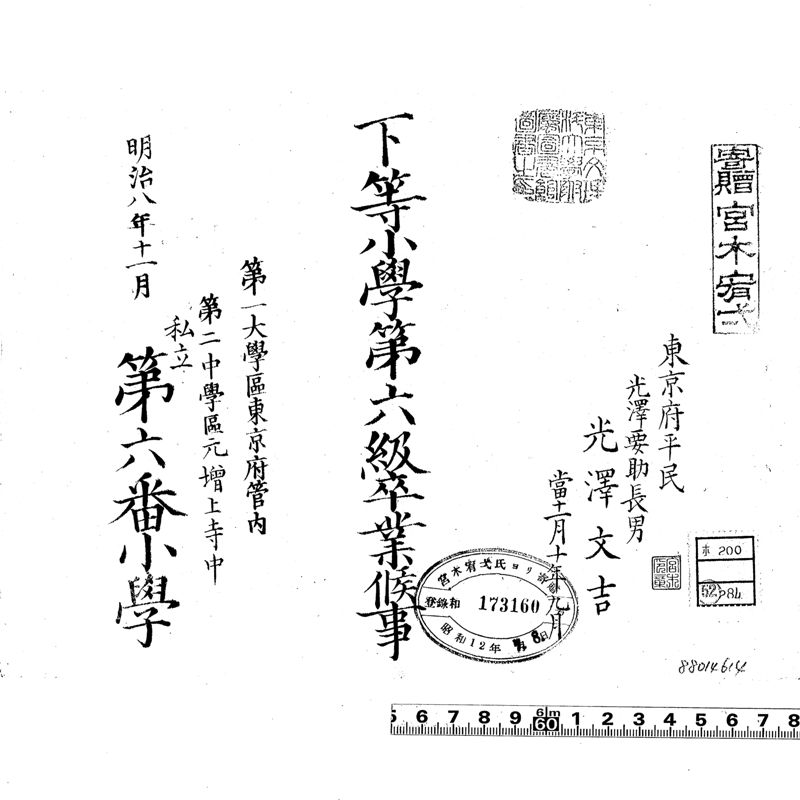 寄贈 宮木宥弌
東京府平民
光澤要助長男
光澤文吉
當十一月十年九月
下等小學第六級卒業候事
第一大學區東京府管内
第二中學區元増上寺中
私立
第六番小學
明治八年十一月
宮木宥弌氏ヨリ寄贈
登錄和 173160
昭和12年 8日
ホ 200
52,284
88014614
5 6 7 8 9 6m 60 1 2 3 4 5 6 7 8